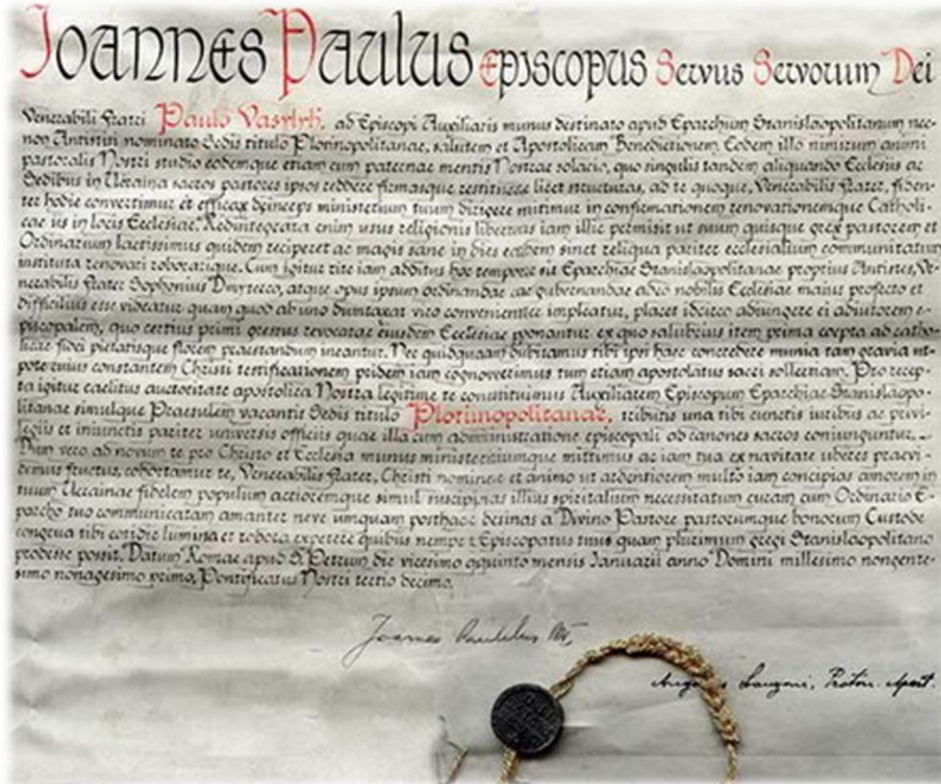 Joannes Paulus Episcopus Servus Servorum Dei
Venerabili Fratri Paulo Vasylyk, ad Episcopi Auxiliaris munus destinato apud Eparchiam Stanislaopolitanam nec-
non Antistiti nominato Sedis titulo Plorinopolitanae, salutem et Apostolicam Benedictionem. Eodem illo nimirum animi
pastoralis Nostri studio eodemque etiam cum paternae mentis Nostrae solacio, quo singulis tandem aliquando Ecclesiis ac
Sedibus in Ucraina sacros pastores ipsos reddere firmasque restituere licet structuras, ad te quoque, Venerabilis Frater, fiden-
ter hodie convertimur et efficax deinceps ministerium tuum dirigere nitimur in confirmationem renovationemque Catholi-
cae iis in locis Ecclesiae. Redintegrata enim usus religionis libertas iam illic permisit ut suum quisque grex pastorem et
Ordinarium laetissimus quidem reciperet ac magis sane in dies eadem sinet reliqua pariter ecclesialium communitatum
instituta renovari roborarique. Cum igitur rite iam additus hoc tempore sit Eparchiae Stanislaopolitanae proprius Antistes, Ve-
nerabilis Frater Sophronius Dmyterco, atque opus ipsum ordinandae ac gubernandae adeo nobilis Ecclesiae maius profecto et
difficilius esse videatur quam quod ab uno dumtaxat viro convenienter impleatur, placet idcirco adiungere ei adiutorem e-
piscopalem, quo certius primi gressus revocatae eiusdem Ecclesiae ponantur ex quo salubrius item prima coepta ad catho-
licae fidei pietatisque florem praestandum ineantur. Nec quidquam dubitamus tibi ipsi haec concredere munia tam gravia ut-
pote cuius constantem Christi testificationem pridem iam cognoverimus tum etiam apostolatus sacri sollertiam. Pro recep-
ta igitur caelitus auctoritate apostolica Nostra legitime te constituimus Auxiliarem Episcopum Eparchiae Stanislaopo-
litanae simulque Praesulem vacantis Sedis titulo Plorinopolitanae, tributis una tibi cunctis iuribus ac privi-
legiis et iniunctis pariter universis officiis quae illa cum administratione episcopali ad canones sacros coniunguntur.
Dum vero ad novum te pro Christo et Ecclesia munus ministeriumque mittimus ac iam tua ex navitate uberes praevi-
demus fructus, cohortamur te, Venerabilis Frater, Christi nomine et animo ut ardentiorem multo iam concipias amorem in
tuum Ucrainae fidelem populum acrioremque simul suscipias illius spiritalium necessitatum curam cum Ordinario E-
parcho tuo communicatam amanter neve umquam posthaec desinas a Divino Pastore pastorumque bonorum Custode
congrua tibi cotidie lumina et robora expetere quibus nempe Episcopatus tuus quam plurimum gregi Stanislaopolitano
prodesse possit. Datum Romae apud S. Petrum die vicesimo quinto mensis Ianuarii anno Domini millesimo nongente-
simo nonagesimo primo, Pontificatus Nostri tertio decimo.
Joannes Paulus
Lanzoni, Proton. Apost.